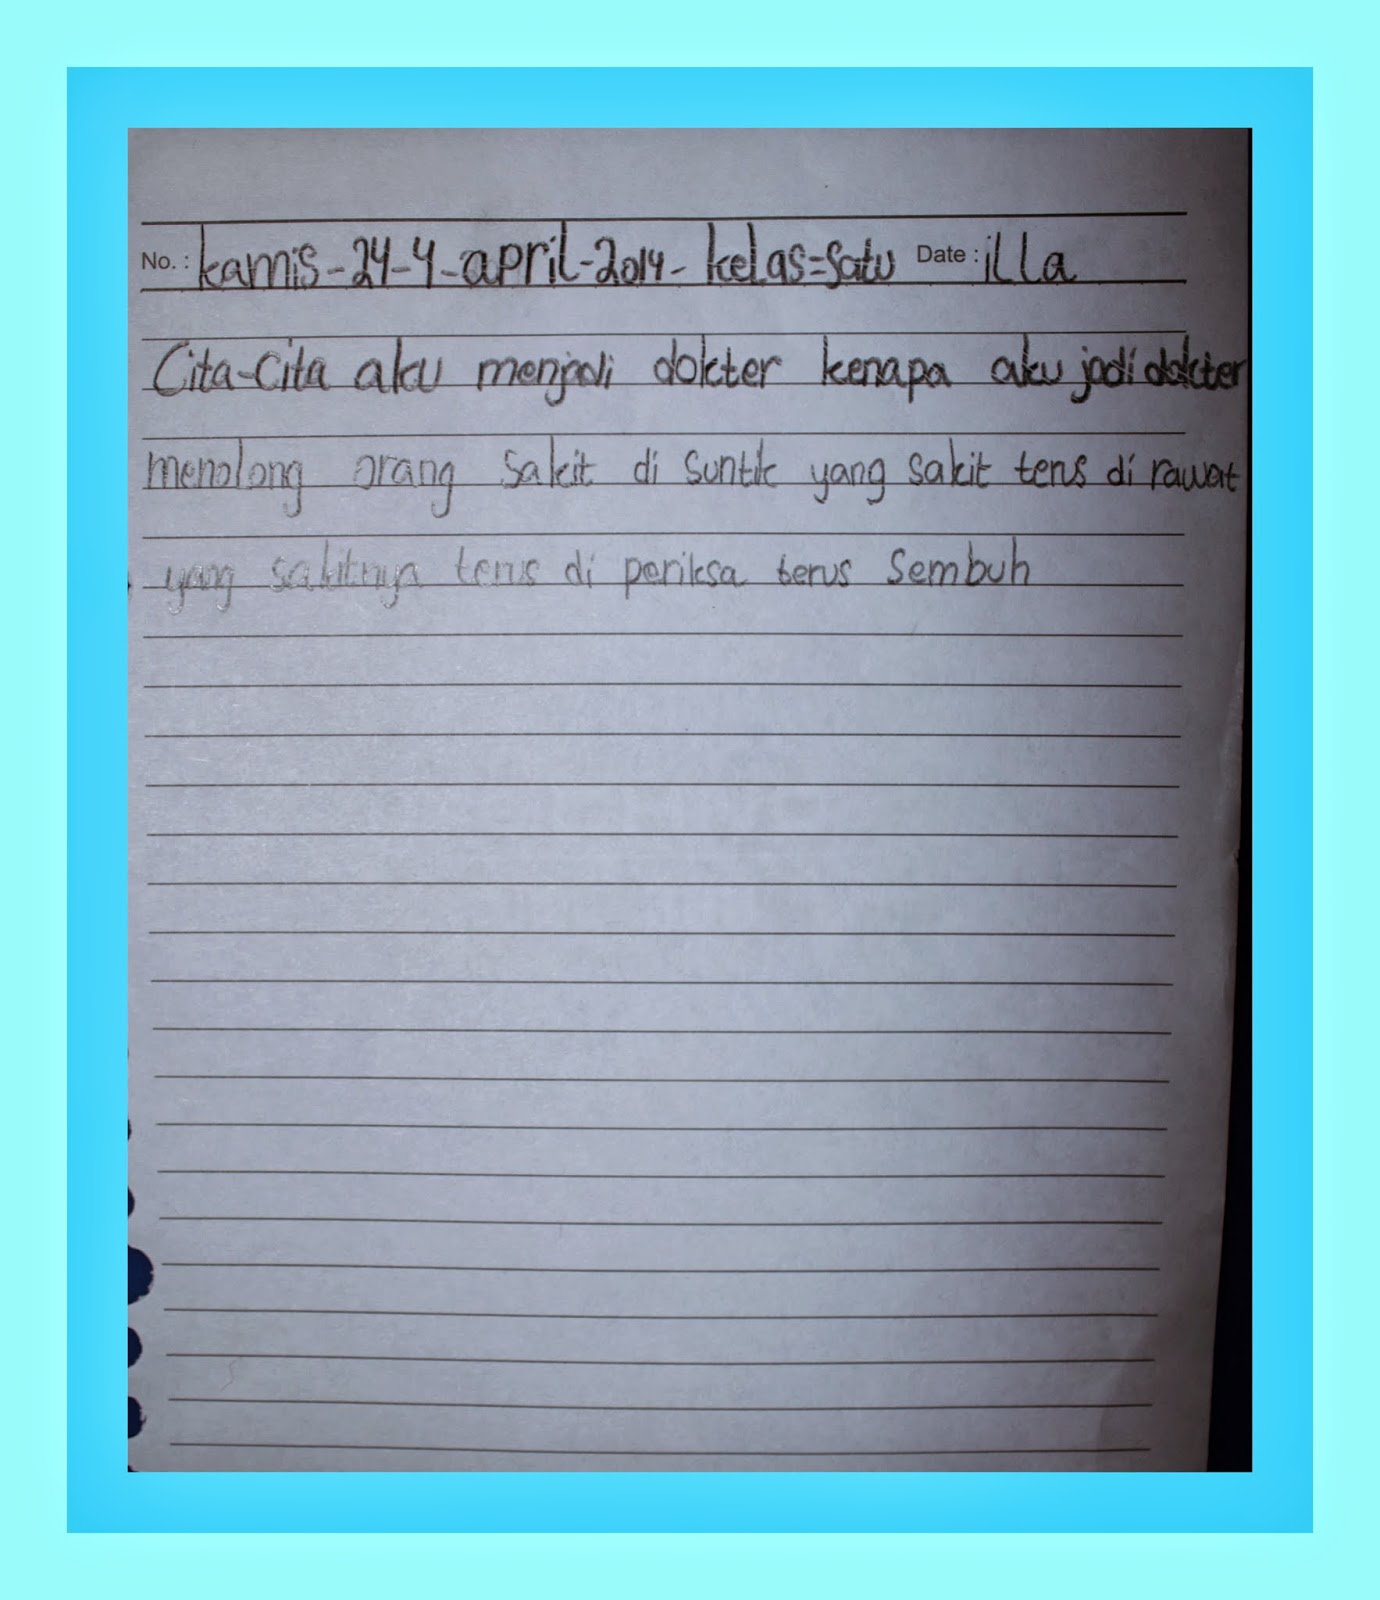 No. : kamis-24-4-april-2014- kelas=satu Date : illa
Cita-Cita aku menjadi dokter kenapa aku jadi dokter
menolong orang sakit di suntik yang sakit terus di rawat
yang sakitnya terus di periksa terus Sembuh